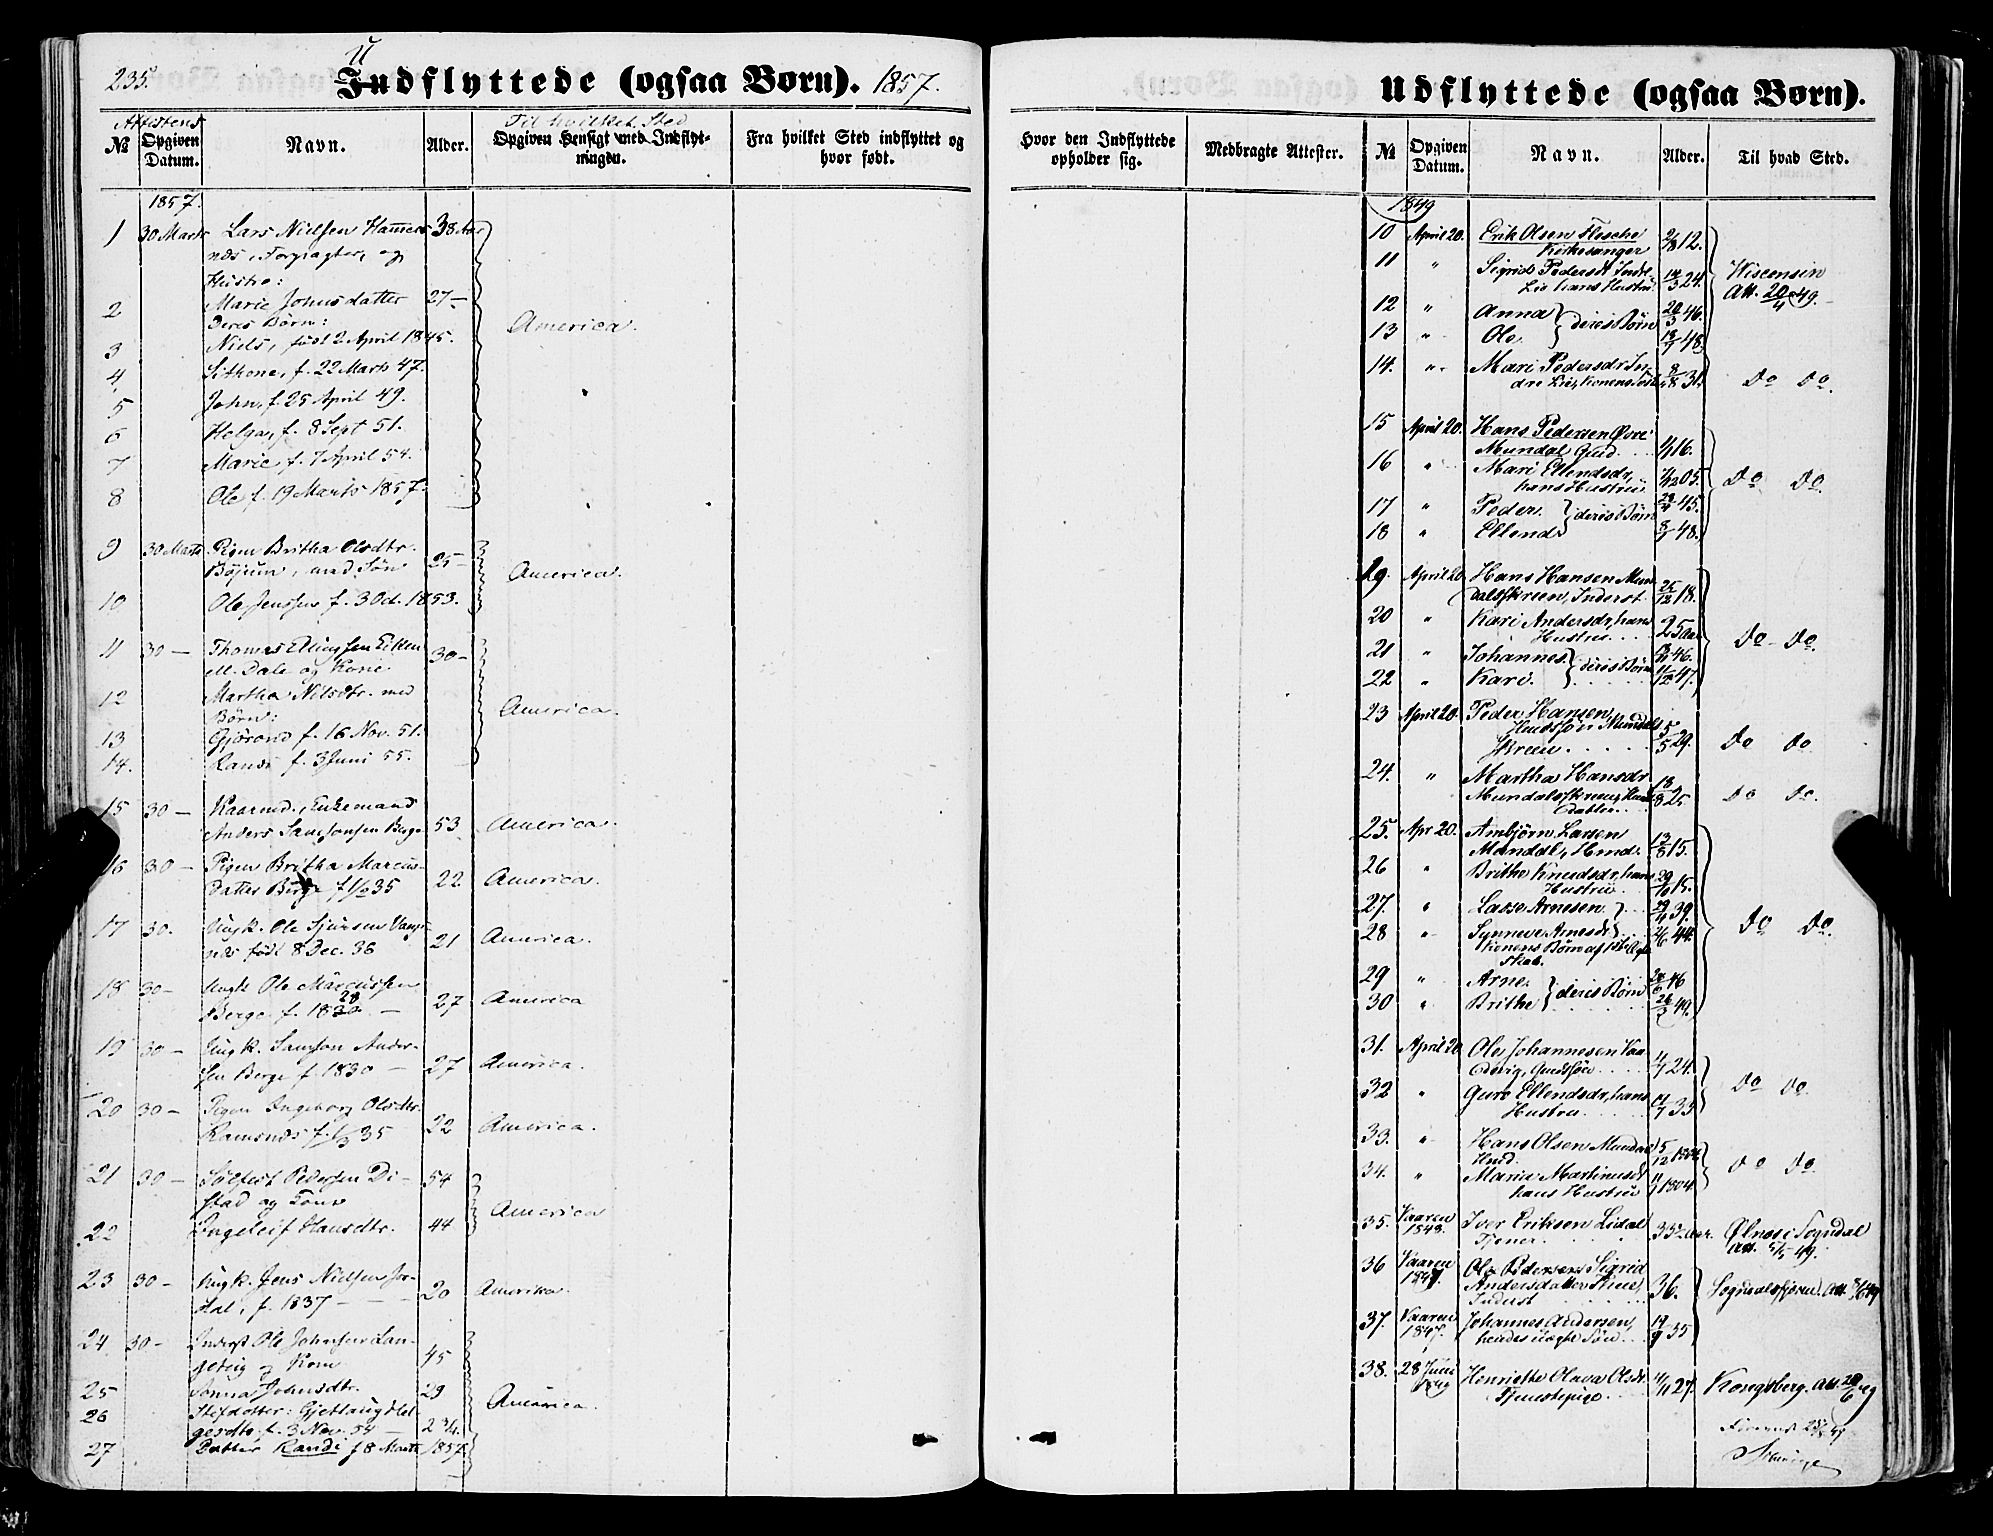 235.
U
Indflyttede (ogsaa Børn). 1857.
Attestens
№
Opgiven Datum.
Navn.
Alder.
Til hvilket Sted
Opgiven Hensigt med Indflyt-
ningen.
Fra hvilket Sted indflyttet og
hvor født.
1857.
1 30 Marts Lars Nielsen Hamer- 38 Aar
næs, Forpagter, og
Hustro:
2 Marie Johnsdatter 27 –
deres Børn:
America.
3 Niels, født 2 April 1845.
4 f. 22 Marts 47.
5 John, f. 25 April 49.
6 Helga, f. 8 Sept 51.
7 Marie f. 7 April 54.
8 Ole f. 19 Marts 1857.
9 30 Marts Pigen Britha Olsdtr.
Bøjum, med Søn 25 – America.
10 Ole Jenssen f. 3 Oct. 1853.
11 30 – Thomas Ellingsen
Dale og Kone 30 –
12 Martha Nilsdtr. med
Børn: America.
13 Gjørond f. 16 Nov. 51.
14. Randi f. 3 Juni 55.
15 30 – Enkemand
Anders Samsonsen Berge 53 America.
16 30 – Pigen Britha Marcus-
datter Berge 35 22 America.
17 30. Ungk. Ole Sjursen Vang-
næs født 8 Dec. 36 21 America.
18 30 – Ungk Ole Marcussen
Berge f. 1830 28 – 27 America
19 30 – Ungk. Samson Ander-
sen Berge f. 1830 – 27 America.
20 30 – Pigen Ingeborg Olsdtr.
Ramsnæs 35 22 America.
21 30 – Sølfest Pedersen Di- 54
stad og Kone America
22 Ingeleif Hansdtr. 44
23 30 – Ungk. Jens Nielsen
f. 1837 – – – 20 Amerika.
24 30 – Inderst Ole Johnsen Lan-
geteig og Kone 45
25 Anna Johnsdtr. 29
America.
26 Stifdatter: Gjetlaug Hel-
gesdtr, f. 3 Nov. 54 – 2 3/4.
27 Datter Randi f 8 Marts 1857.
Hvor den Indflyttede
opholder sig.
Medbragte Attester.
Udflyttede (ogsaa Børn).
№
Opgiven
Datum.
Navn.
Alder.
Til hvad Sted.
1849
10 April 20. Erik Olsen Flesche
Kirkesanger 2/8 12.
11 " Sigrid Pedersdt Indre-
Lie hans Hustru 14/3 24. Wisconsin
Att. 20/4 49.
12 " Anna } deres Børn 26/3 46.
13 " Ole 18/7 48.
14. " Mari Pedersdr In-
dre Lie, Konens 8/8 31. Do Do.
15 April 20. Hans Pedersen Øvre
Mundal Gmd. 16.
16 " Mari Ellendsdr,
hans Hustru 05. Do Do.
17 " Peder } deres Børn 45.
18 " Ellend 48.
19. April 20 Hans Hansen Mun-
dalsskreen, Inderst. 25/12 18.
20 " Kari Andersdr, hans
Hustru . . . 25 Aar
21 " Johannes } deres Børn 46. Do – Do.
22 " Kari. 47.
23 April 20. Peder Hansen,
Mundals
skreen . . . . . 5/5 29. Do Do
24. " Martha Hansdr
Mundalsskreen 18/8 25 Do Do.
25. Apr 20. Ambjørn Larsen
Mundal, Hmd. 13/8 15.
26 " Brithe Knudsdr, hans
Hustru . . 15.
27. " Lasse Arnesen 39.
28 " Synneve Arnesdr 44. Do Do.
Konens Børn af 1ste Ægte-
skab.
29 " Arne } deres Børn 46
30 " Brithe 49.
31. April 20 Ole Johannesen Vaa-
4/7 24.
32 " Guro Ellendsdr, hans Do Do.
Hustru 33
33. " Hans Olsen Mundal 5/12
Hmd. Do Do
34. " Maria Martinusdr
hans Hustru 1804.
35. Vaaren
1848. Iver Eriksen Lidal
Tjener. 33 Aar. Ølnæs i Sogndal
Att. 5/5 49.
36 Vaaren
1847. Ole Pedersens Sigrid
Andersdatter
Inderst 36. Sogndalsfjøren.
37. Vaaren
1847. Johannes Andersen,
hendes uægte Søn. 19/9 35
38. 28 Juni
1849 Henriette Olava Olsdr.
Tjenestepige. 4/11 27. Kongsberg. Att. 28/6 49